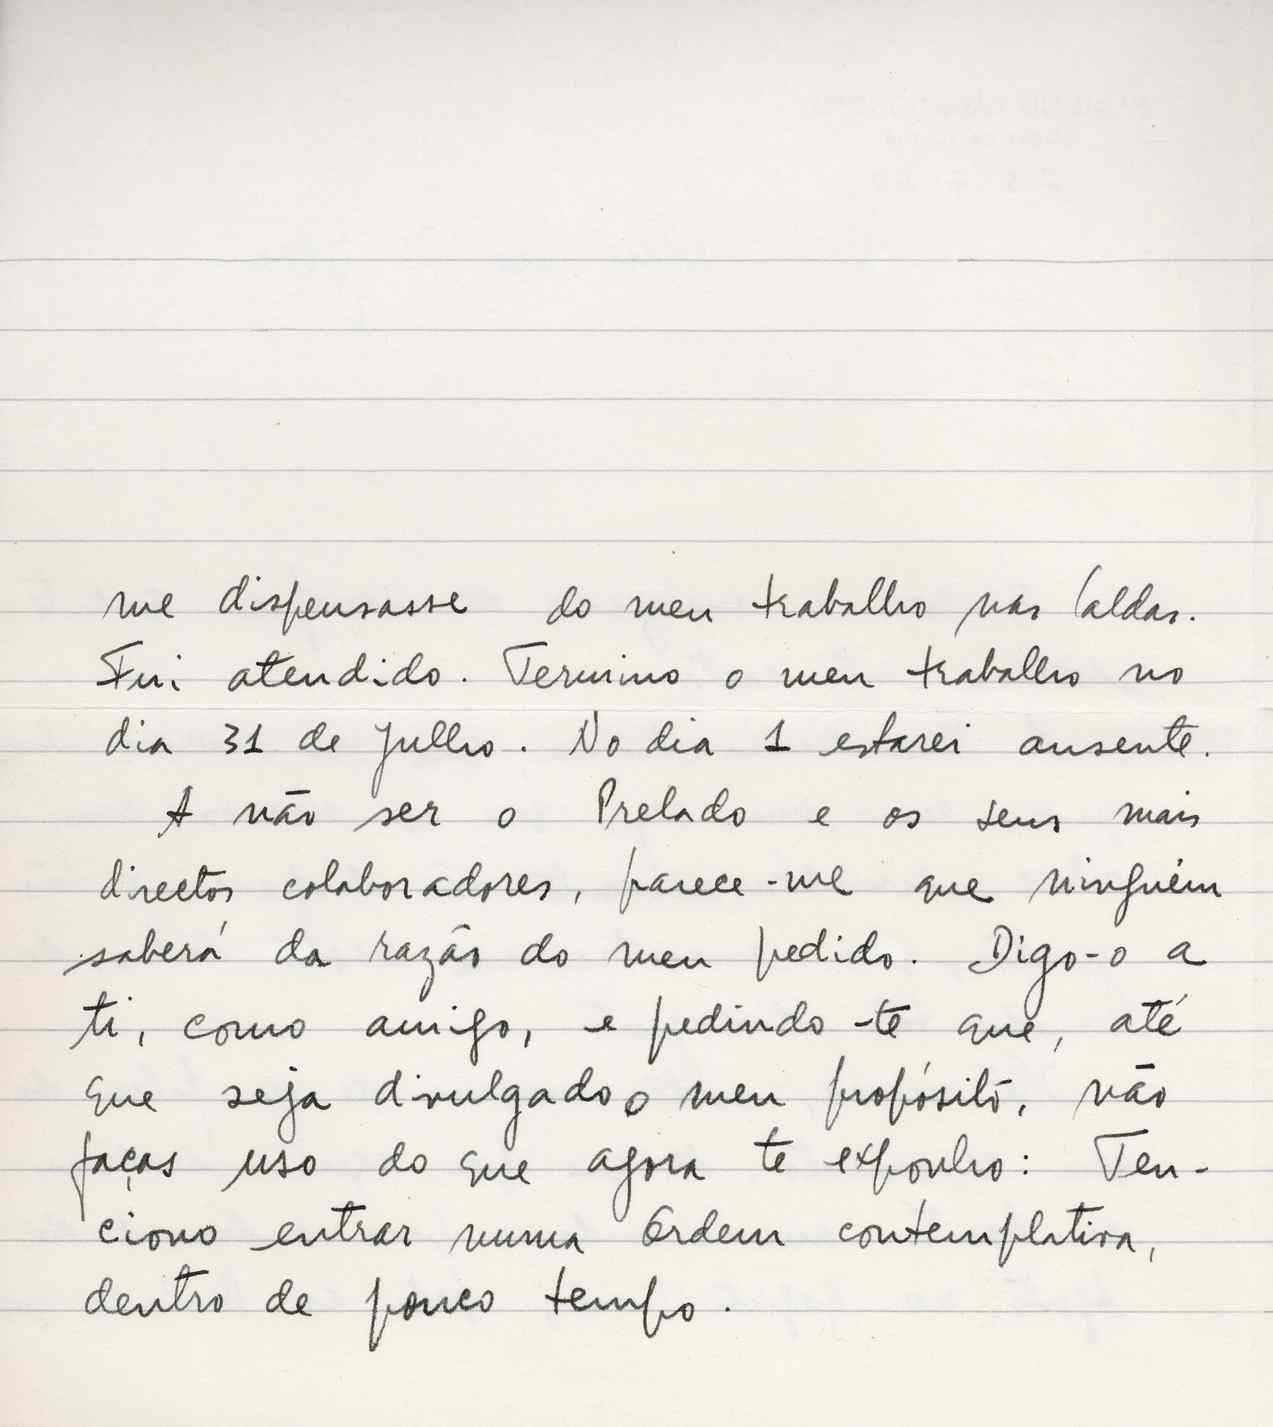 me dispensasse do meu trabalho nas Caldas.
Fui atendido. Termino o meu trabalho no
dia 31 de Julho. No dia 1 estarei ausente.
A não ser o Prelado e os seus mais
directos colaboradores, parece-me que ninguém
saberá da razão do meu pedido. Digo-o a
ti, como amigo, e pedindo-te que, até
que seja divulgado o meu propósito, não
faças uso do que agora te exponho: Ten-
ciono entrar numa Ordem contemplativa,
dentro de pouco tempo.